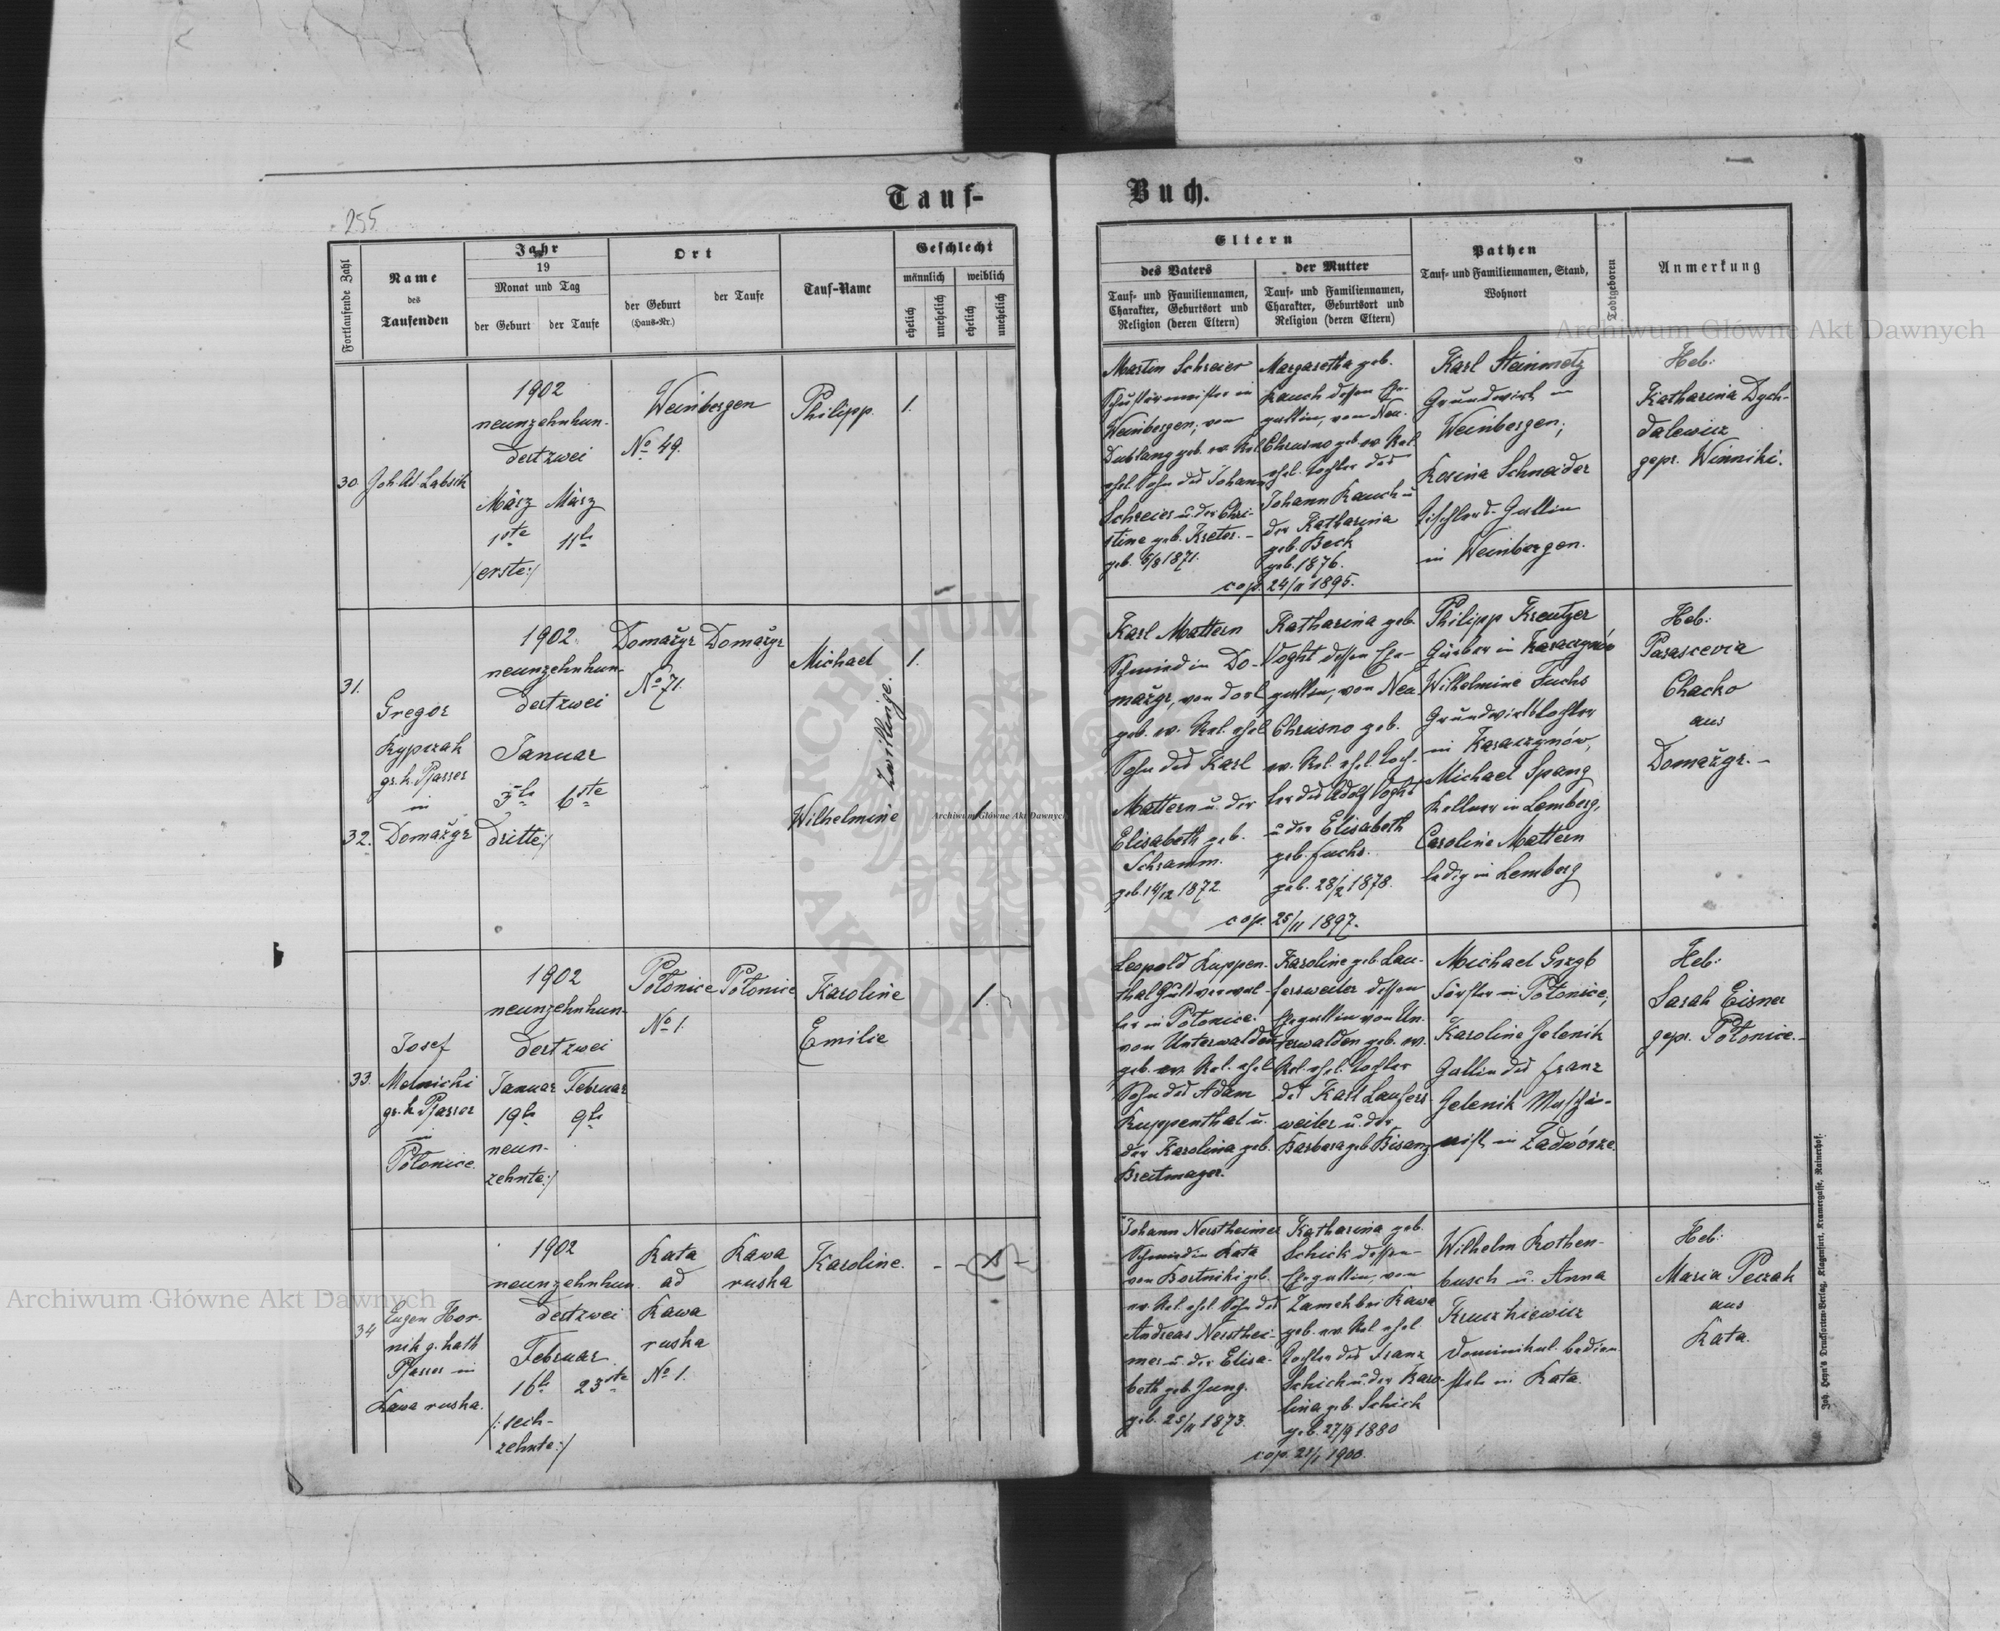 255
Tauf-
Buch.
Fortlaufende Zahl
Name
des
Taufenden
Jahr
19
Monat und Tag
der Geburt
der Taufe
Ort
der Geburt
(Haus-Nr.)
der Taufe
Tauf-Name
Geschlecht
männlich
weiblich
ehelich
unehelich
ehelich
unehelich
Eltern
des Vaters
Tauf- und Familiennamen,
Charakter, Geburtsort und
Religion (deren Eltern)
der Mutter
Tauf- und Familiennamen,
Charakter, Geburtsort und
Religion (deren Eltern)
Pathen
Tauf- und Familiennamen, Stand,
Wohnort
Todtgeboren
Anmerkung
30
Joh. Ad. Labsik
1902
neunzehnhun-
dertzwei
März März
1ste 11te
/erste:/
Weinbergen
No 49.
Philipp.
1.
Martin Schreier
Schustermeister in
Weinbergen, von
Dublany geb. ev. Rel.
ehel. Sohn des Johann
Schreier u. der Chri-
stine geb. Kreter. -
geb. 5/8 1871.
Margaretha geb.
Rauch dessen Ehe-
gattin, von Neu-
Chrusno geb. ev. Rel.
ehel. Tochter des
Johann Rauch u
der Katharina
geb. Beck
geb. 1876.
cop. 24/11 1895.
Karl Steinmetz
Grundwirt in
Weinbergen;
Rosina Schneider
Tischlers-Gattin
in Weinbergen.
Heb:
Katharina Dych-
dalewicz
gepr. Winniki.
31.
32.
Gregor
Kyprzak
gr. k. Pfarrer
in
Domažyr
1902
neunzehnhun-
dertzwei
Januar
3te 6ste
Dritte:/
Domažyr
No 71.
Domažyr
Michael
1.
Zwillinge.
Wilhelmine
1
Karl Mattern
Schmied in Do-
mažyr, von dort
geb. ev. Rel. ehel
Sohn des Karl
Mattern u. der
Elisabeth geb.
Schramm.
geb. 14/12 1872.
Katharina geb.
Voght dessen Ehe-
gattin, von Neu
Chrusno geb.
ev. Rel. ehel. Toch-
ter des Adolf Voght
u der Elisabeth
geb. Fuchs.
geb. 28/2 1878.
cop. 25/11 1897.
Philipp Kreutzer
in Karaczynów
Wilhelmine Fuchs
Grundwirtstochter
in Karaczynów,
Michael Spang
Kellner in Lemberg,
Caroline Mattern
ledig in Lemberg
Heb:
Parascevia
Chacko
aus
Domažyr. -
33.
Josef
Melnicki
gr. k. Pfarrer
in
Połonice.
1902
neunzehnhun-
dertzwei
Januar Februar
19te 9te
neun-
zehnte:/
Połonice
No 1.
Połonice
Karoline
Emilie
1.
Leopold Kuppen-
thal Gutsverwal-
ter in Połonice.
von Unterwalden
geb. ev. Rel. ehel
Sohn des Adam
Kuppenthal u.
der Karolina geb.
Breitmayer.
Karoline geb. Lau-
fersweiler dessen
Ehegattin von Un-
terwalden geb. ev.
Rel. ehel. Tochter
des Karl Laufers-
weiler u. der
Barbara geb. Bisanz
Michael Grzyb
Förster in Połonice;
Karoline Jelenik
Gattin des Franz
Jelenik Maschi-
nist in Zadwórze.
Heb:
Sarah Eisner
gepr. Połonice. -
34
Eugen Hor-
nik g. kath
Pfarrer in
Rawa ruska.
1902
neunzehnhun-
dertzwei
Februar
16te 23ste
/:sech-
zehnte:/
Kata
ad
Rawa
ruska
No 1.
Rawa
ruska
Karoline.
Johann Nerstheimer
Schmied in Kata
von Bortniki geb.
ev. Rel. ehel. Sohn des
Andreas Nersthei-
mer u. der Elisa-
beth geb. Jung.
geb. 25/11 1873.
Katharina geb.
Schick dessen
Ehegattin, von
Zamek bei Rawa
geb. ev. Rel. ehel
Tochter des Franz
Schick u. der Karo-
lina geb. Schick
geb. 27/9 1880
cop. 21/1 1900.
Wilhelm Rothen-
busch u. Anna
Kruszkiewicz
in Kata.
Heb:
Maria Peczak
aus
Kata.
Joh. Heyn's Drucksorten-Verlag, Klagenfurt, Kramergasse, Rainerhof.
Archiwum Główne Akt Dawnych
Archiwum Główne Akt Dawnych
Archiwum Główne Akt Dawnych